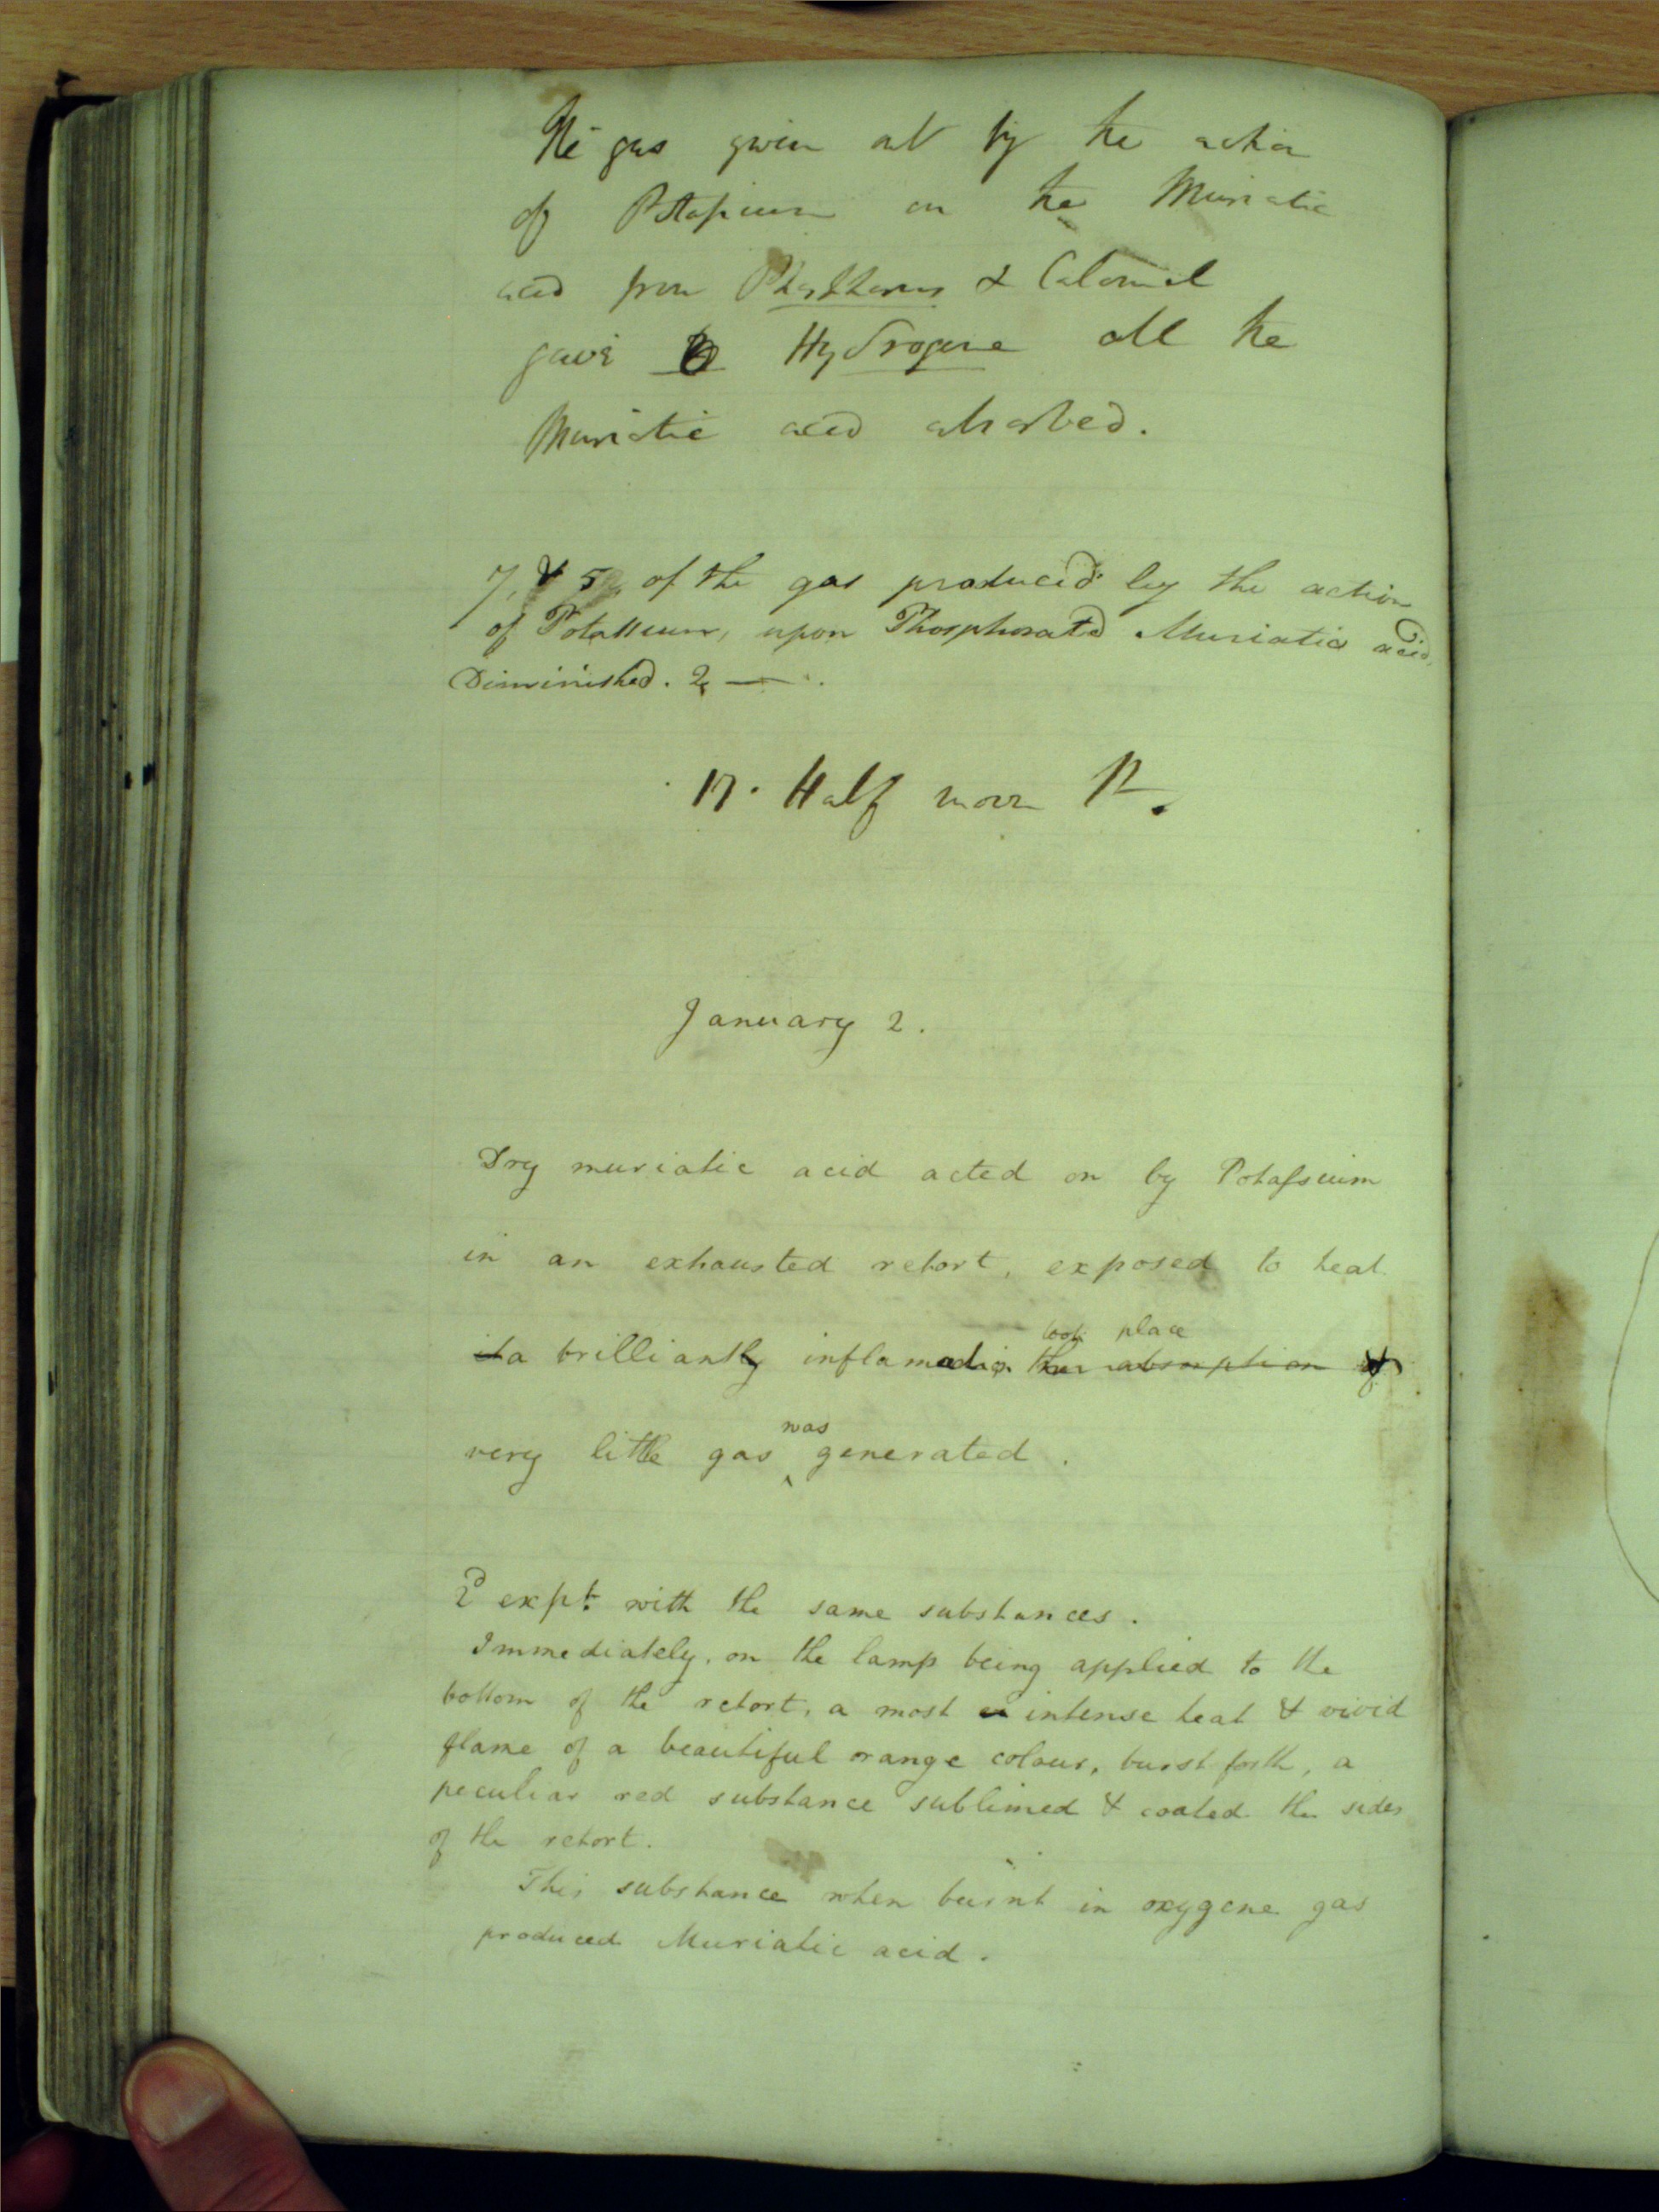 The gas given out by the action
of Potassium on the Muriatic
acid from Phosphorus & Calomel
gave 6 Hydrogene all the
Muriatic acid absorbed.
7, & 5, of the gas produced by the action
of Potassium, upon Phosphorated Muriatic acid,
Diminished. 2, —
17. Half moon St.
January 2.
Dry muriatic acid acted on by Potassium
in an exhausted retort, exposed to heat
it a brilliantly inflamation the absorption of
took place
very little gas was generated.
2d expt. with the same substances.
Immediately, on the lamp being applied to the
bottom of the retort, a most intense heat & vivid
flame of a beautiful orange colour, burst forth, a
peculiar red substance sublimed & coated the sides
of the retort.
This substance when burnt in oxygene gas
produced Muriatic acid.